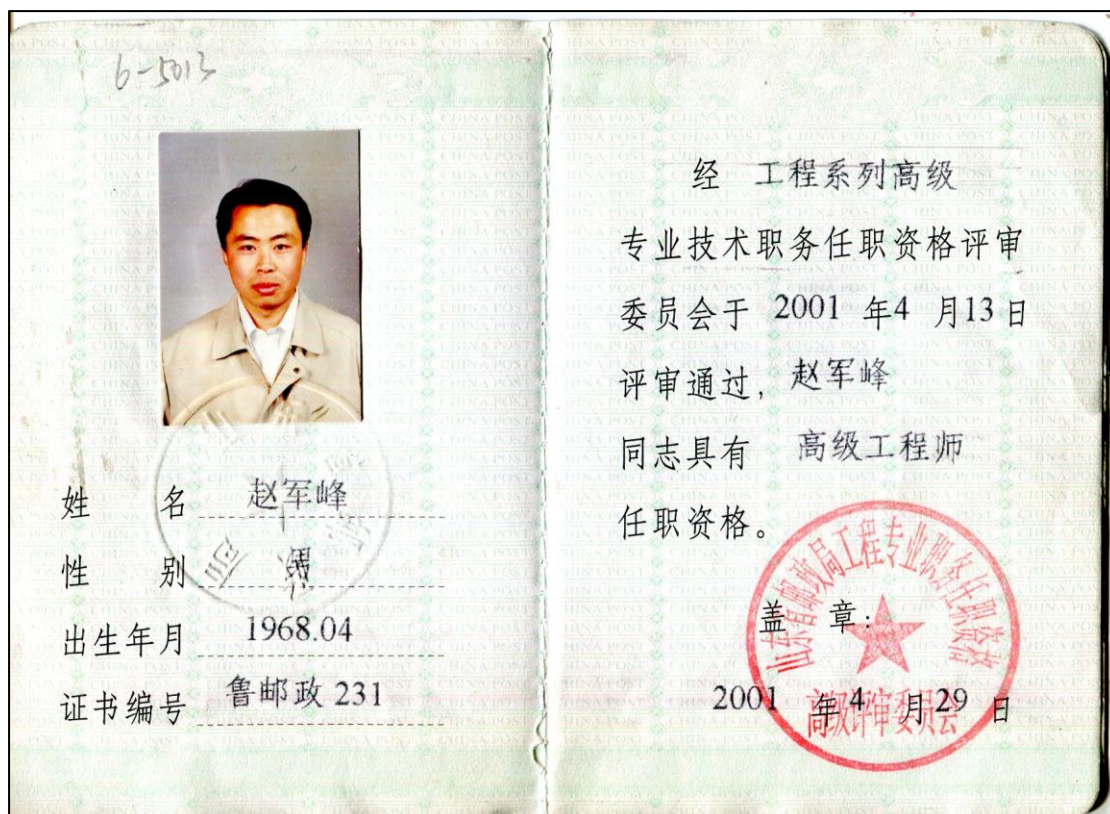 6-5013
姓 名 赵军峰
性 别 男
出生年月 1968.04
证书编号 鲁邮政 231
经 工程系列高级
专业技术职务任职资格评审
委员会于 2001 年4 月13日
评审通过，赵军峰
同志具有 高级工程师
任职资格。
盖 章：
2001 年 4 月 29 日
山东省邮政局工程专业职务任职资格
高级评审委员会
CHINA POST